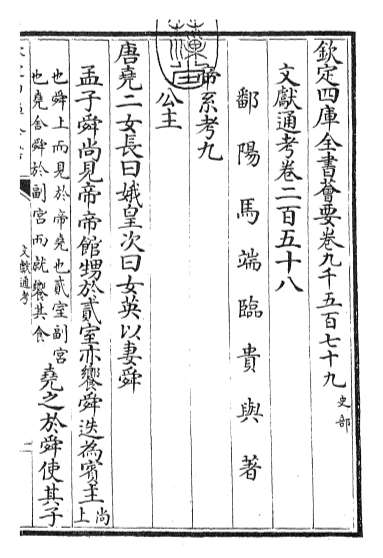 欽定四庫全書薈要卷九千五百七十九 史部
文獻通考卷二百五十八
鄱陽馬端臨貴與著
帝系考九
公主
唐堯二女長曰娥皇次曰女英以妻舜
孟子舜尚見帝帝館甥於貳室亦饗舜迭為賓主 尚上
也舜上而見於帝堯也貳室副宮
也堯舍舜於副宮而就饗其食
堯之於舜使其子
文獻通考